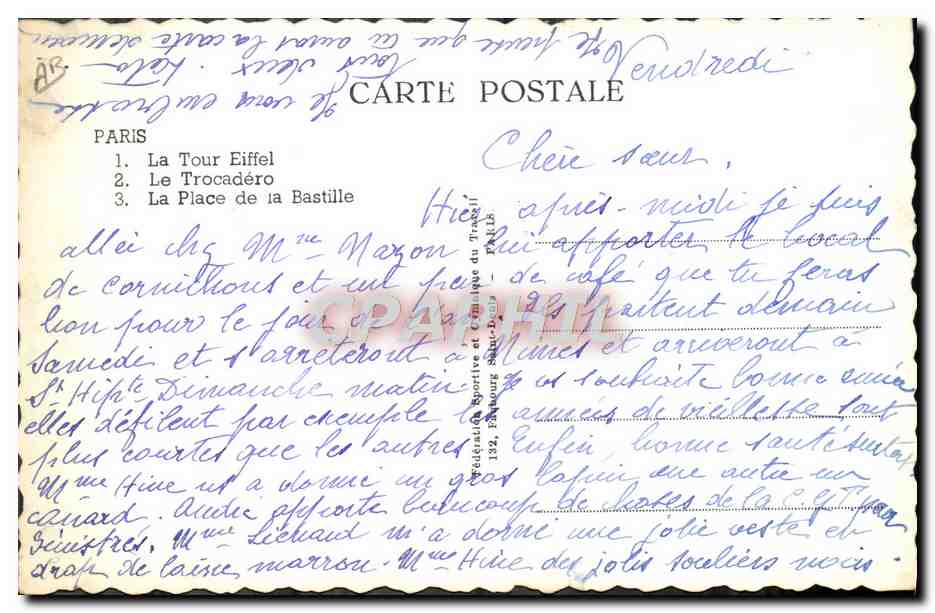 Vendredi
CARTE POSTALE
PARIS
1. La Tour Eiffel
2. Le Trocadéro
3. La Place de la Bastille
Chère sœur,
Hier après-midi je suis
allée chez Mme Nazon lui apporter le bocal
de cornichons et un peu de café que tu feras
bon pour le jour de l'an. Ils partent demain
Samedi et s'arrêteront à Nîmes et arriveront à
St Hipte Dimanche matin. Je vs souhaite bonne année
elles défilent par exemple les années de vieillesse sont
plus courtes que les autres. Enfin, bonne santé surtout
Mme Hine ns a donné un gros lapin une autre un
canard. André apporte beaucoup de choses de la C.G.T. pour
Sinistrés. Mme Liénard m'a donné une jolie veste en
drap de laine marron. Mme Hine des jolis souliers noirs.
Je vous embrasse
Tous deux.
Je pense que tu auras la carte demain
AB
Fédération Sportive et Gymnique du Travail
132, Faubourg Saint-Denis - PARIS
CPARHIL